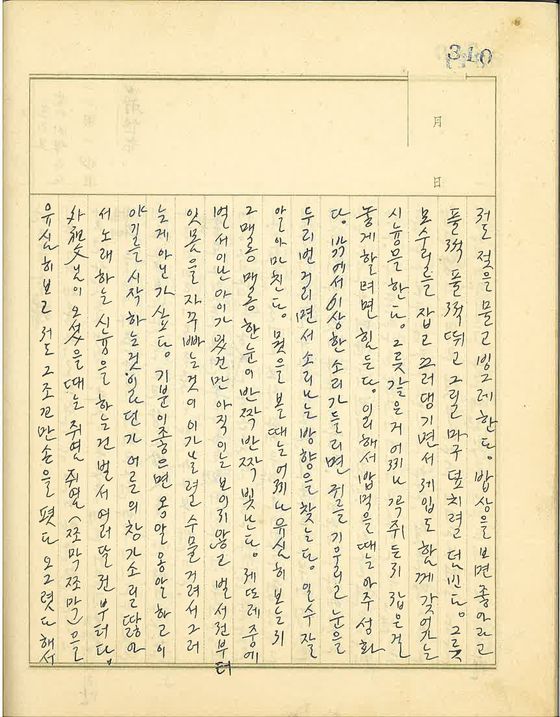 310
月
日
절 젖을 물고 빙그레 한다. 밥상을 보면 좋아라고
풀쩍 풀쩍 뛰고 그리고 마구 덮치려 덤빈다. 그릇
모수리를 잡고 끄러댕기면서 제입도 함께 갖어가는
시늉을 한다. 그릇 같은 거 어찌나 꼭 쥐는지 잡은걸
놓게 할려면 힘든다. 이러해서 밥먹을 때는 아주 성화
다. 밖에서 이상한 소리가 들리면 귀를 기우리고 눈을
두리번거리면서 소리나는 방향을 찾는다. 일수 잘
알아마친다. 몃을 볼 때는 어찌나 유심히 보는지
그 매롱 매롱 한 눈이 반짝 반짝 빛난다. 제또레 중에
벌서 이난 아이가 있건만 아직 이는 보이지 않고 벌서전부터
잇몸을 자꾸 빠는 것이 이가 날려고 수물거려서 그러
는게 아닌가 싶다. 기분이 좋으면 옹알 옹알 하고 이
야기를 시작하는 것이라던가 어른의 창가소리를 딿아
서 노래하는 시늉을 하는건 벌서 여러달 전부터다.
外祖父님이 오셨을 때는 쥐염 쥐염 (쪼막쪼막)을
유심히 보고 저도 그 조고만 손을 폇다 오그렷다 해서